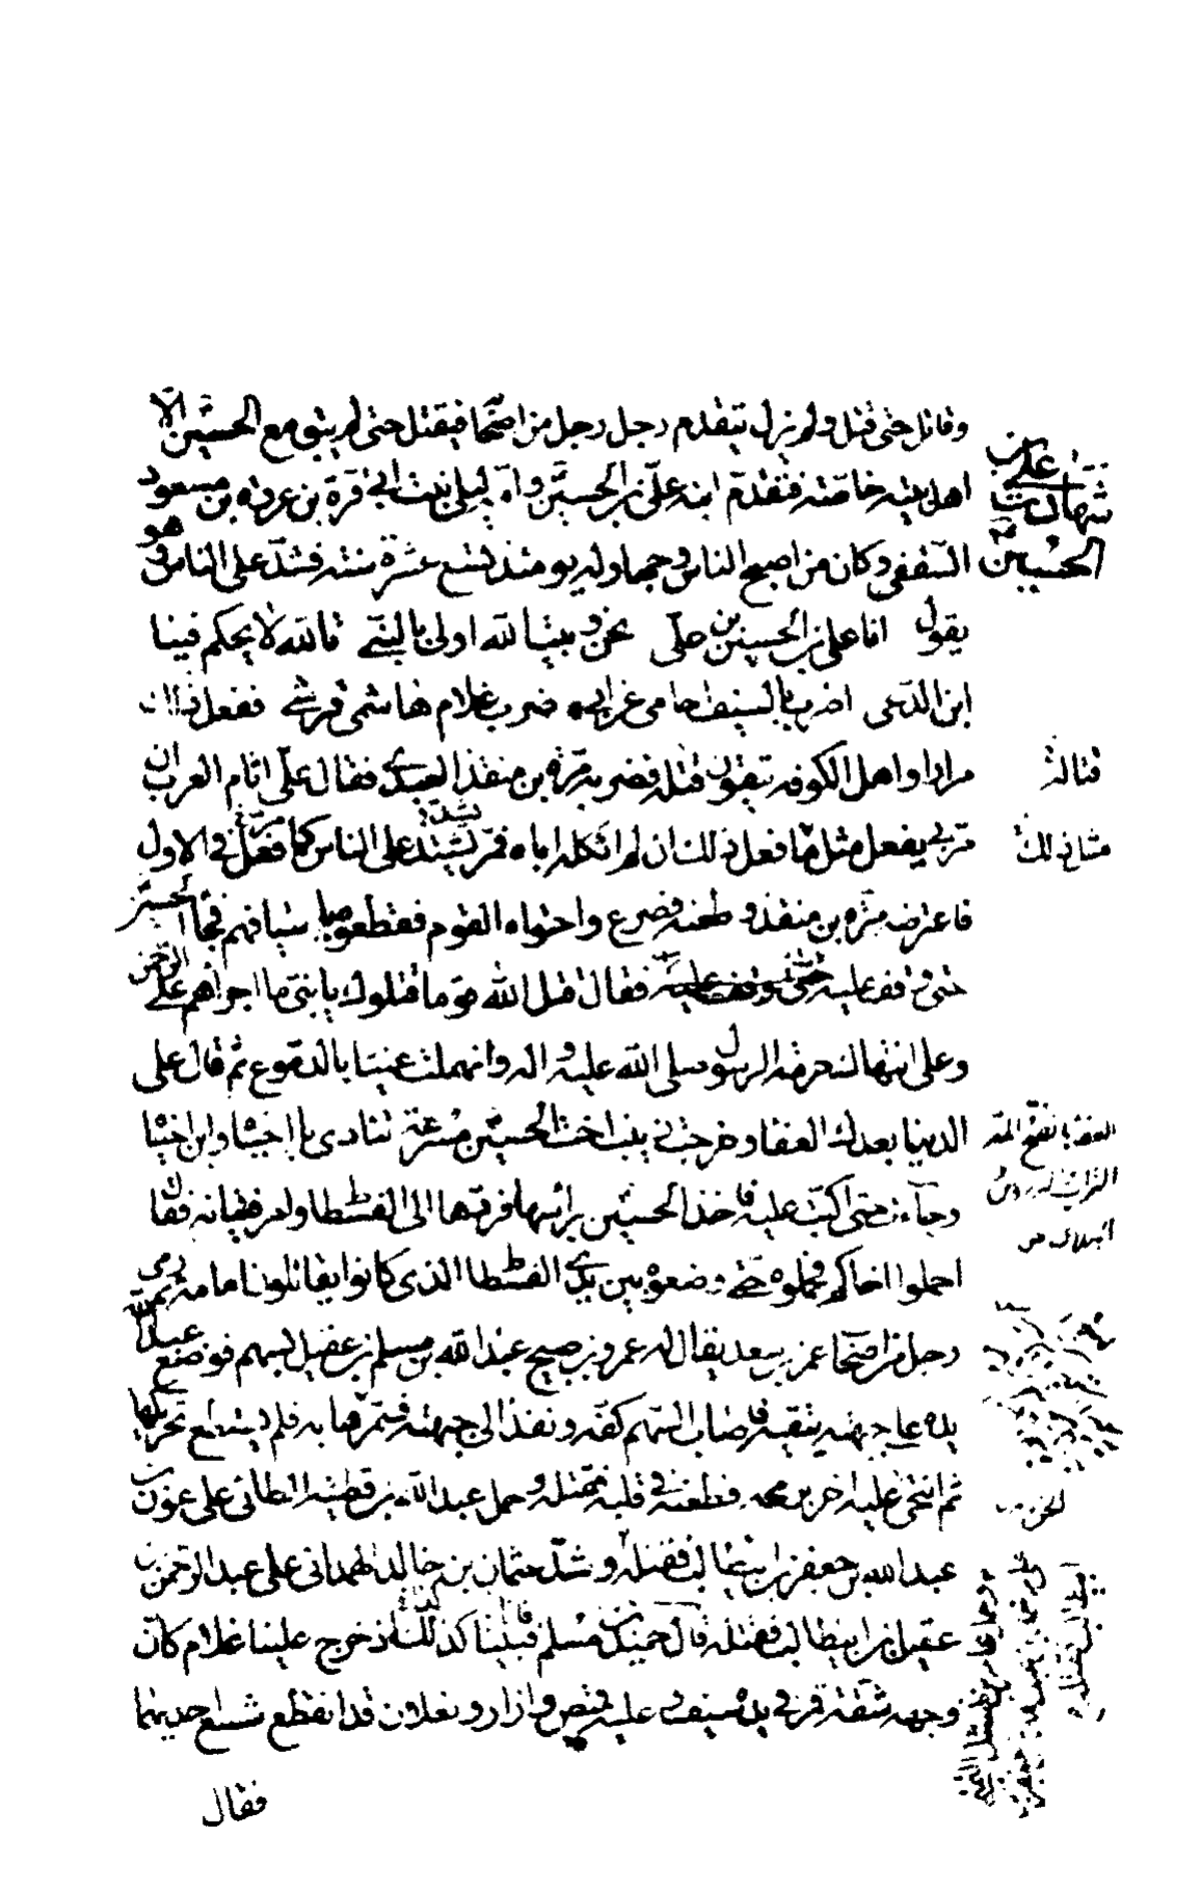 وقاتل حتى قتل ولم يزل يتقدم رجل رجل من اصحابه فيقتل حتى لم يبق مع الحسين الا
اهل بيته خاصة فتقدم ابنه علي بن الحسين وامه ليلى بنت ابي قرة بن عروة بن مسعود
الثقفي وكان من اصبح الناس وجها وله يومئذ تسع عشرة سنة فشد على الناس وهو
يقول انا علي بن الحسين بن علي نحن وبيت الله اولى بالنبي تالله لا يحكم فينا
ابن الدعي اضرب بالسيف احامي عن ابي ضرب غلام هاشمي قرشي ففعل ذلك
مرارا واهل الكوفة يتقون قتله فبصر به مرة بن منقذ العبدي فقال علي اثام العرب ان
مر بي يفعل مثل ما فعل ذلك ان لم اثكله اباه فمر يشتد على الناس كما فعل في الاول
فاعترضه مرة بن منقذ وطعنه فصرع واحتواه القوم فقطعوه باسيافهم فجاء الحسين
حتى وقف عليه فقال قتل الله قوما قتلوك يا بني ما اجراهم على الرحمن
وعلى انتهاك حرمة الرسول صلى الله عليه واله وانهملت عيناه بالدموع ثم قال على
الدنيا بعدك العفا وخرجت زينب اخت الحسين مسرعة تنادي يا اخياه وابن اخياه
وجاءت حتى اكبت عليه فاخذ الحسين براسها فردها الى الفسطاط وامر فتيانه فقال
احملوا اخاكم فحملوه حتى وضعوه بين يدي الفسطاط الذي كانوا يقاتلون امامه ثم رمى
رجل من اصحاب عمر بن سعد يقال له عمرو بن صبيح عبد الله بن مسلم بن عقيل بسهم فوضع عبد الله
يده على جبهته يتقيه فاصاب السهم كفه ونفذ الى جبهته فسمرها به فلم يستطع تحريكها
ثم انتحى عليه اخر برمحه فطعنه في قلبه فقتله وحمل عبد الله بن قطبة الطائي على عون بن
عبد الله بن جعفر بن ابي طالب فقتله وشد عثمان بن خالد الهمداني على عبد الرحمن بن
عقيل بن ابي طالب فقتله قال حميد بن مسلم فبينا كذلك اذ خرج علينا غلام كان
وجهه شقة قمر في يده سيف وعليه قميص وازار ونعلان قد انقطع شسع احديهما
فقال
شهادت علي بن
الحسين
قتاله
مثل ذلك